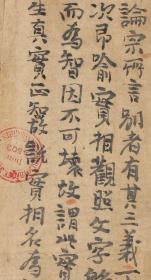 論宗辨言別者有其三義一
次節喻實相觀照文字般
而為智因不可壞故謂此實
生真實正智故說實相名為